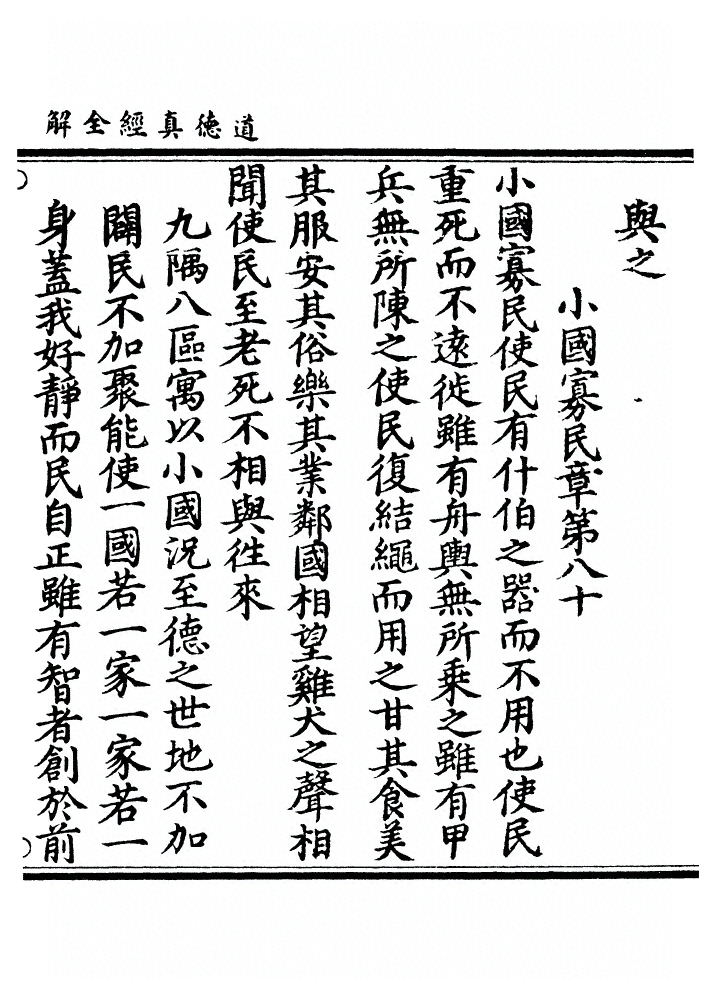 道德真經全解
與之
小國寡民章第八十
小國寡民使民有什伯之器而不用也使民
重死而不遠徙雖有舟輿無所乘之雖有甲
兵無所陳之使民復結繩而用之甘其食美
其服安其俗樂其業鄰國相望雞犬之聲相
聞使民至老死不相與徃來
九隅八區寓以小國況至德之世地不加
闢民不加聚能使一國若一家一家若一
身蓋我好靜而民自正雖有智者創於前